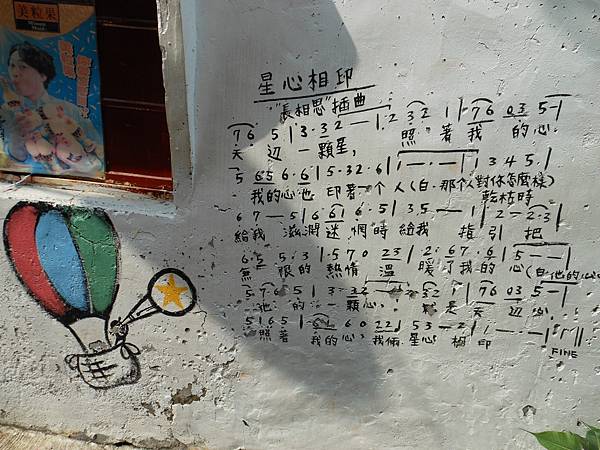 美粒果
星心相印
"長相思"插曲
7 6 5 | 3 · 3 2 — | 1 · 2 3 2 1 | 7 6 0 3 5 — |
天 边 一顆星， 照 著 我 的 心．
5 6 5 6 · 6 | 5 · 3 2 · 6 | 1 — · — | 3 4 5 · |
我的心也 印著一个 人(白．那个人對你怎麼樣) 乾枯時
6 7 — 5 | 6 6 1 6 · 5 | 3 5 — — | 2 — 2 · 3 |
給我 滋潤迷 惘時 給我 指 引 把
6 · 5 5 · 3 | · 5 7 0 2 3 | 2 · 6 7 · 6 | 5 — — |
無 限的 熱情 溫 暖了我的 心(白他的心
5 7 6 5 | 3 · 3 2 — 3 2 7 6 0 3 5 — |
他 的 一 顆心． 是 天 边
5 1 6 5 | 6 0 2 2 | 5 3 — 2 | 1 — — —
照著 我的心 我倆 星心 相 印
FINE